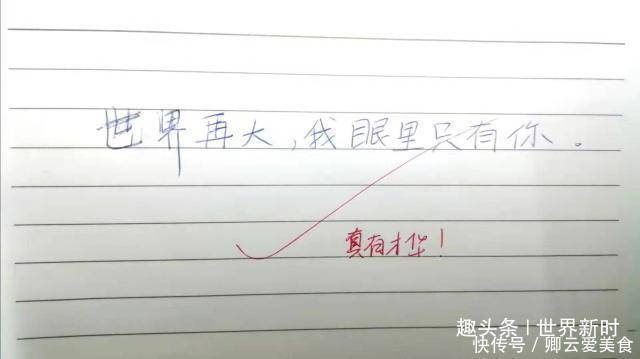 世界再大，我眼里只有你。
真有才华！
趣头条 | 世界新时
快传号 / 卿云爱美食